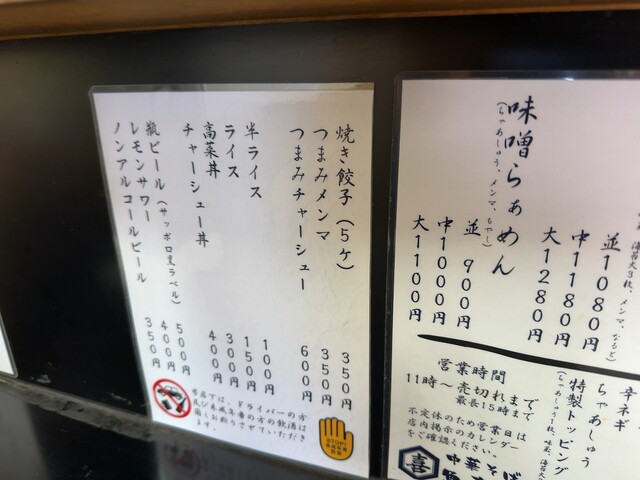 海苔大3枚、メンマ、なると)
並1080円
中1180円
大1280円
味噌らぁめん
(ちゃあしゅう、メンマ、もやし)
並 900円
中1000円
大1100円
辛ネギ
ちゃあしゅう
特製トッピング
(ちゃあしゅう1枚、味玉、海苔
営業時間
11時～売切れまで
最長15時まで
不定休のため営業日は
店内掲示のカレンダー
をご確認ください。
喜
中華そば
焼き餃子(5ケ) 350円
つまみメンマ 350円
つまみチャーシュー 600円
半ライス 100円
ライス 150円
高菜丼 300円
チャーシュー丼 400円
瓶ビール(サッポロ黒ラベル) 500円
レモンサワー 400円
ノンアルコールビール 350円
当店では、ドライバーの方
及び未成年者の方の飲酒は
固くお断りさせていただき
ます。
STOP!